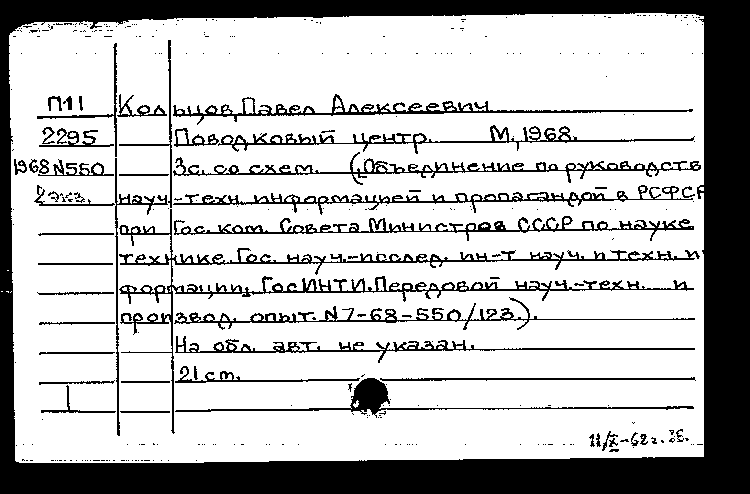 П11 Кольцов, Павел Алексеевич
2295 Поводковый центр. М, 1968.
1968 N550 3с. со схем. (Объединение по руководств
2 экз. науч.-техн. информацией и пропагандой в РСФСР
при Гос. ком. Совета Министров СССР по науке
технике. Гос. науч.-исслед. ин-т науч. и техн. ин
формации, ГосИНТИ. Передовой науч.-техн. и
производ. опыт. N7-68-550/123).
На обл. авт. не указан.
21 cm.
11/X-68г.